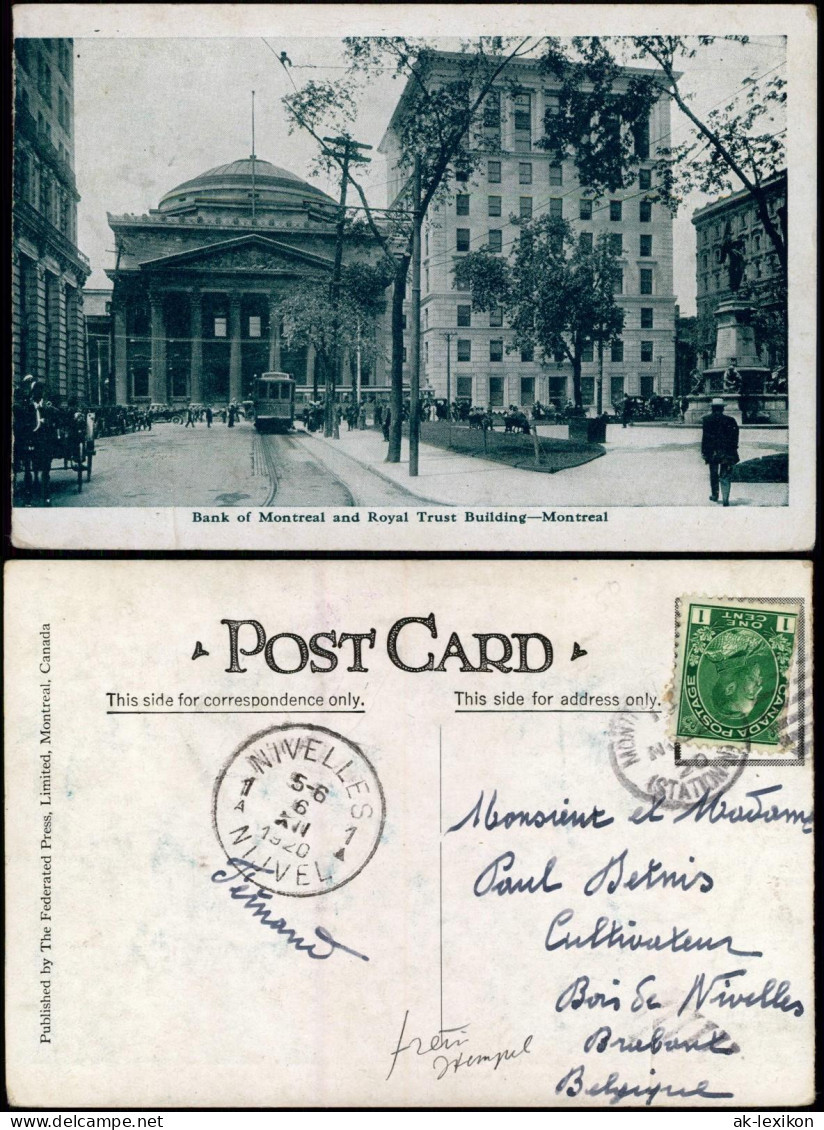 Bank of Montreal and Royal Trust Building—Montreal
POST CARD
This side for correspondence only.
This side for address only.
1 ONE CENT 1
CANADA POSTAGE
Published by The Federated Press, Limited, Montreal, Canada
NIVELLES
1 A
5-6
6
XII
1920
1
NIJVEL
20
(STATION
Fernand
Monsieur et Madame
Paul Bernis
Cultivateur
Bois de Nivelles
Brabant
Belgique
Hempel
ak-lexikon